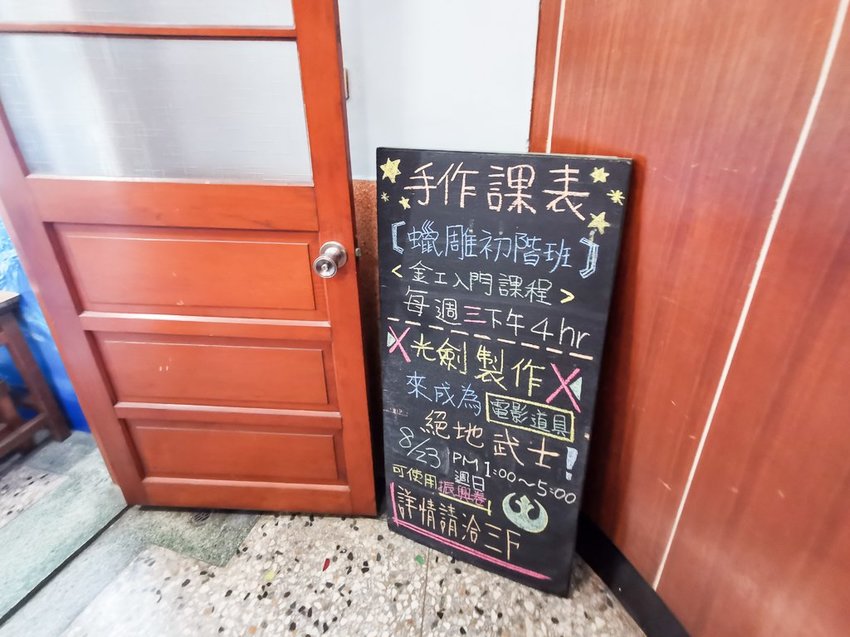 手作課表
【蠟雕初階班】
<金工入門課程>
每週三下午4hr
光劍製作
來成為 電影道具
絕地武士!
8/23 週日 PM1:00~5:00
可使用振興卷
詳情請洽三F